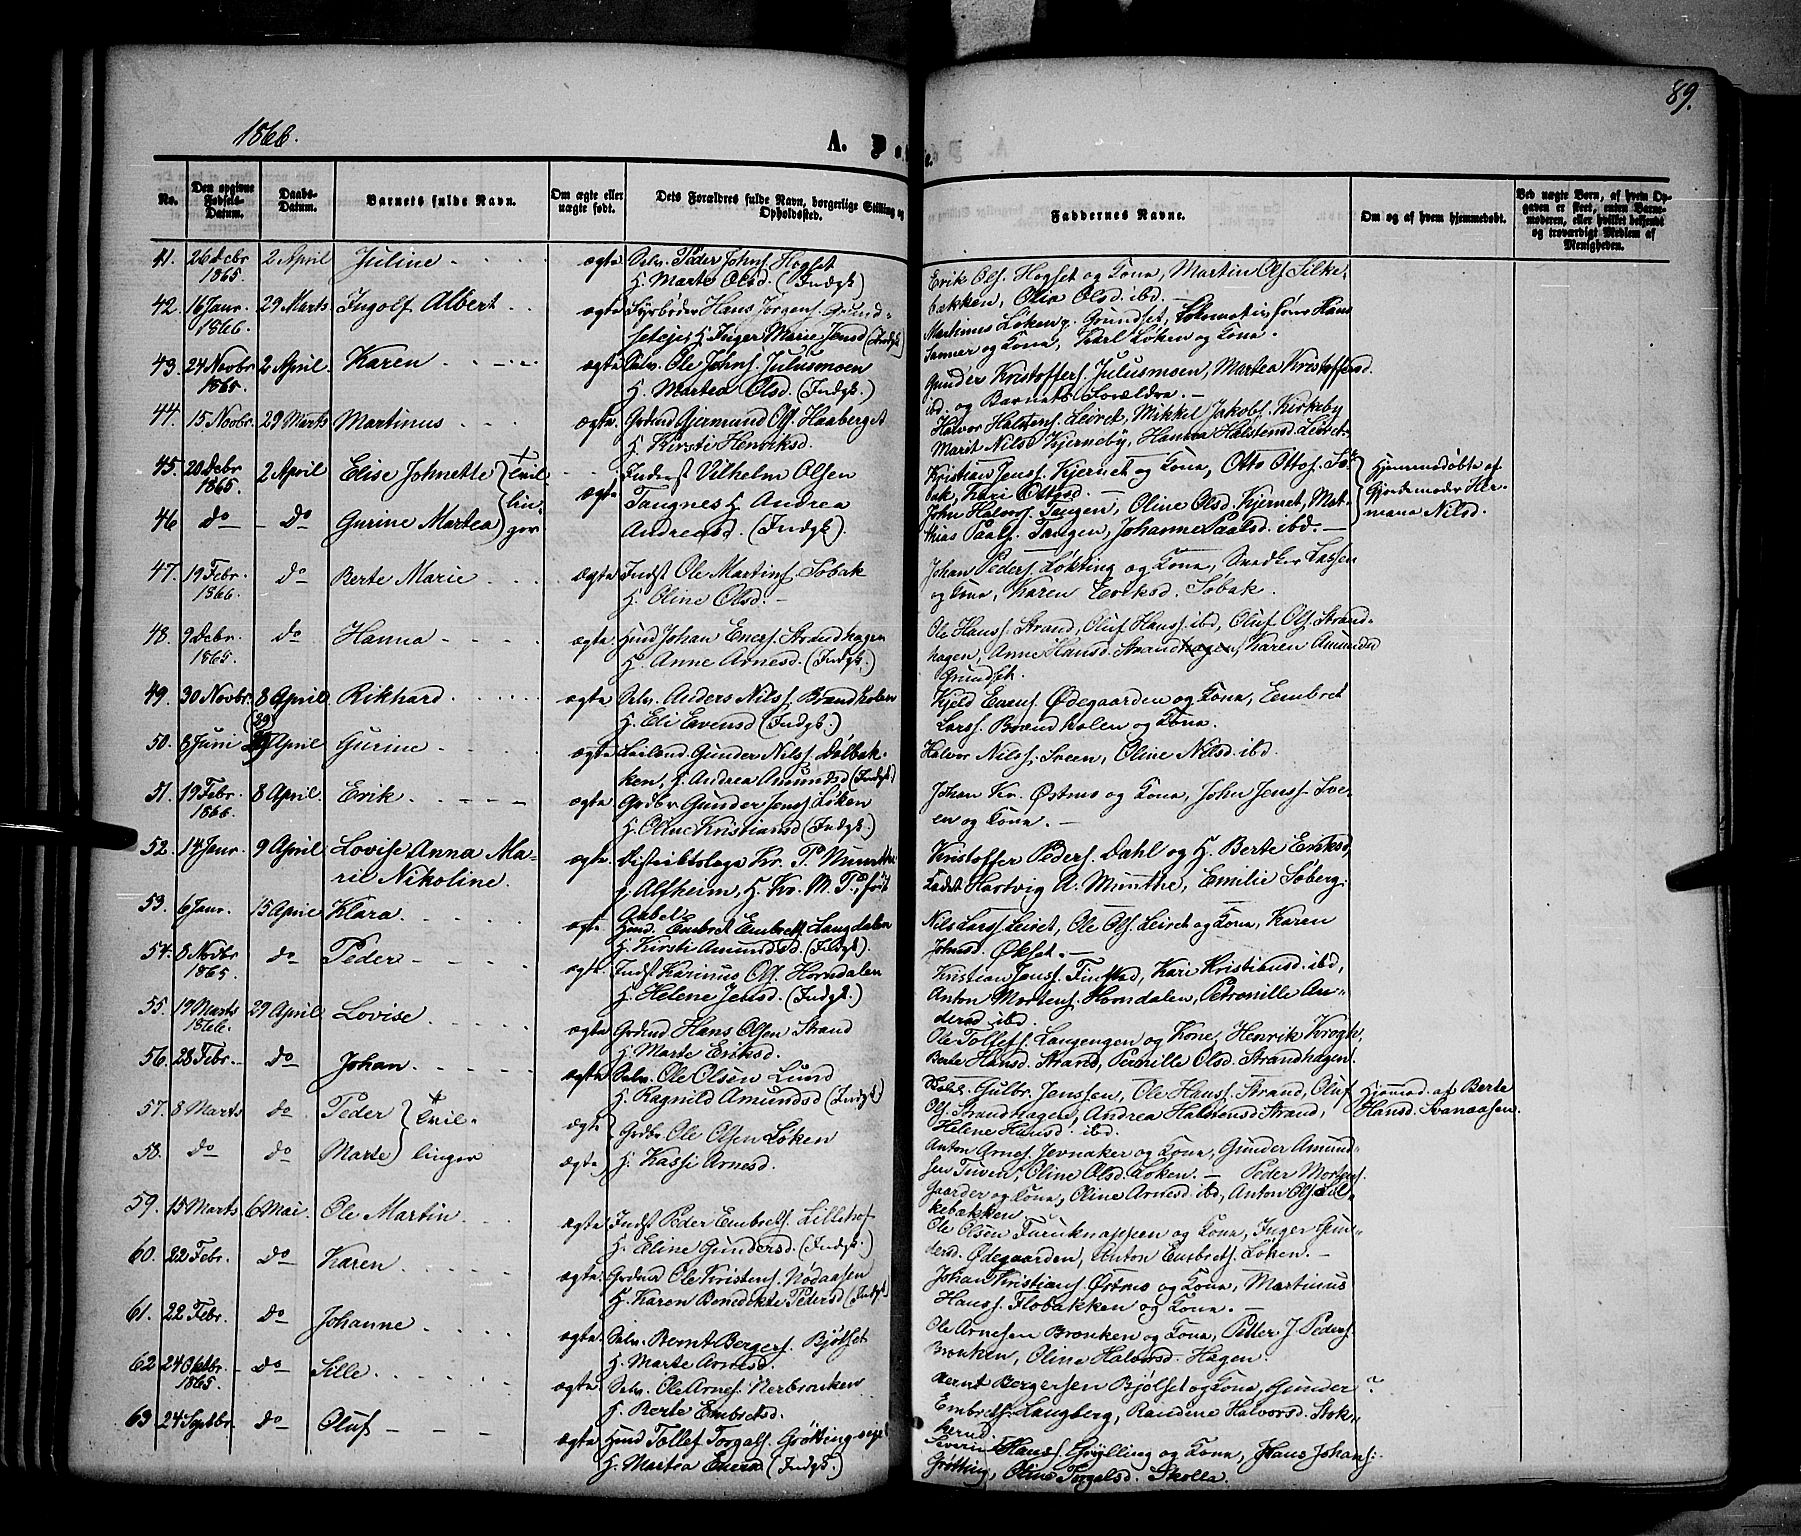 1866.
A. D
89.
No.
Den opgivne Fødsels-Datum.
Daabs-Datum.
Barnets fulde Navn.
Om ægte eller uægte født.
Dets Forældres fulde Navn, borgerlige Stilling og Opholdssted.
Faddernes Navne.
Om og af hvem hjemmedøbt.
Ved uægte Børn, af hvem Opgaven er skeet, enten Barnemoderen, eller hvilket bekjendt og troværdigt Medlem af Menigheden.
41. 26 Debr 1865 2 April Juline ægte Selv. Peder Johns. Hogset
H. Marte Olsd. (Indgk.)
Erik Ols. Hogset og Kone, Martin Ols. Silke-
bakken, Olia Olsd. ibd.
42. 16 Janr. 1866 29 Marts Ingolf Albert ægte Fyrbøder Hans Jørgens. Grund-
setejet H. Inger Marie Jensd (Indgk)
Martinus Løken g. Grundset, Lokomotivfører Hans
Sanner og Kone, Karl Løken og Kone.
43. 24 Novbr 1865 2 April Karen ægte Selv. Ole Johns. Julusmoen
H. Martea Olsd. (Indgk.)
Gunder Kristoffers. Julusmoen, Martea Kristoffersd
ibd. og Barnets Forældre.
44. 15 Novbr. 29 Marts Martinus ægte Grdmd Gjermund Ols. Haaberget
H. Kirsti Henriksd.
Halvor Halstens. Leiret, Mikkel Jakobs. Kirkeby
Marit Nilsd Kjerneby, Hanna Halstensd. Leiret
45. 20 Debr 1865. 2 April Elise Johnette Tvil-
ægte Inderst Vilhelm Olsen
Tangnes H. Andrea
Kristian Jens. Kjernet og Kone, Otto Ottos. Sø-
bak, Kari Ottosd.
Hjemmedøbte af
Gjordemoder Her-
mana Nilsd.
46 do do Gurine Martea lin-
ger
Andreasd. (Indgk.)
John Halvors. Tangen, Oline Olsd. Kjernet, Mat-
thias Paals. Tangen, Johanne Paalsd. ibd.
47. 19 Febr. 1866. do Berte Marie ægte Indst Ole Martins. Søbak
H. Oline Olsd.
Johan Peders. Løkting og Kone, Snedker Lassen
og Kone, Karen Eriksd. Søbak.
48. 9 Debr. 1865. do Hanna ægte Hmd Johan Eners. Strandhagen
H. Anne Arnesd. (Indgk.)
Ole Hanss. Strand, Oluf Hanss. ibd, Oluf Ols. Strand-
hagen, Anne Hansd. Strandhagen, Karen Amundsd
Grundset.
49. 30 Novbr. 8 April Rikhard ægte Selv. Anders Nils. Brændholen
H. Eli Evensd (Indgk.)
Kjeld Eners. Ødegaarden og Kone, Embret
Larss. Brændholen og Kone.
50. 8 Juni April Gurine ægte Leilænd. Gunder Nils. Dølbak-
ken, H. Andrea Amundsd (Indgk)
Halvor Nilss. Sveen, Oline Nilsd. ibd.
51. 19 Febr. 1866. 8 April. Erik ægte Grdbr Gunder Jens. Løken
H. Oline Kristiansd (Indgk.)
Johan Kr. Østmo og Kone, John Jenss. Sve-
en og Kone.
52. 14 Janr. 9 April Lovise Anna Ma-
rie Nikoline.
ægte Distriktslæge Kr. P. Munthe
g. Alfheim, H. Kr. M. T., født
Gabel
Kristoffer Peders. Dahl og H. Berte Eriksd,
Kadet Hartvig A. Munthe, Emilie Søberg.
53. 6 Janr. 15 April Klara ægte Hmd. Embret Embrets. Langdalen
H. Kirsti Amundsd. (Indgk).
Nils Larss. Leiret, Ole Ols. Leiret og Kone, Karen
Johnsd. Økset.
54. 8 Novbr 1865. do Peder ægte Indst Karinus Ols. Horndalen
H. Helene Jensd. (Indgk.)
Kristian Jenss. Finstad, Kari Kristiansd. ibd,
Anton Mortens. Horndalen, Petronille An-
dersd ibd
55. 19 Marts 1866. 29 April Lovise ægte Grdmd Hans Olsen Strand
H. Marte Eriksd.
Ole Tollefs. Langengen og Kone, Henrik Krogh,
Berte Hansd. Strand, Pernille Olsd. Strandhagen.
56. 28 Febr. do Johan ægte Selv. Ole Olsen Lund
H. Ragnild Amundsd (Indgk)
Gulbr. Jenssen, Ole Hanss. Strand, Oluf
Ols. Strandhagen, Andrea Halstensd. Strand,
Helene Hansd. ibd.
Hjemmed. af Berte
Hansd. Svenaasen.
57. 8 Marts do Peder Tvil-
ægte Grdbr Ole Olsen Løken
58. do do Marte lingor
ægte H. Kassi Arnesd.
Anton Arnes. Jevnaker og Kone, Gunder Amund-
sen Tuven, Oline Olsd. Løken. Peder Mortens.
Gaarder og Kone, Oline Arnesd. ibd, Anton Ols. Sil-
kebakken
59. 15 Marts 6 Mai. Ole Martin ægte Indst Peder Embrets. Lilletof
H. Eline Gundersd. (Indgk.)
Ole Olsen Furuknappen og Kone, Inger Gun-
dersd. Ødegaarden, Anton Embrets. Løken.
60. 22 Febr. do Karen ægte Grdmd Ole Kristens. Nødaasen
H. Karen Benedikte Pedersd (Indgk)
Johan Kristians. Østmo og Kone, Martinus
Hanss. Flobakken og Kone.
61. 22 Febr. do Johanne ægte Selv. Bernt Bergers. Bjølset
H. Marte Arnesd.
Ole Arnesen Bronken og Kone, Petter J. Peders.
Bronken, Oline Halvorsd. Hagen.
62 24 Oktbr. 1865. do Sille ægte Selv. Ole Arnes. Nerbronken
H. Berte Embretsd.
Bernt Bergersen Bjølset og Kone, Gunder ?
Embrets. Langberg, Randine Halvorsd. Stok-
kerud.
63 24 Septbr. do Oluf ægte Hmd Tollef Torgals. Grøttingseje
H. Martea Enersd (Indgk.)
Severin Hanss. Gylling og Kone, Hans Johans.
Grøtting, Oline Torgalsd. Skolla.